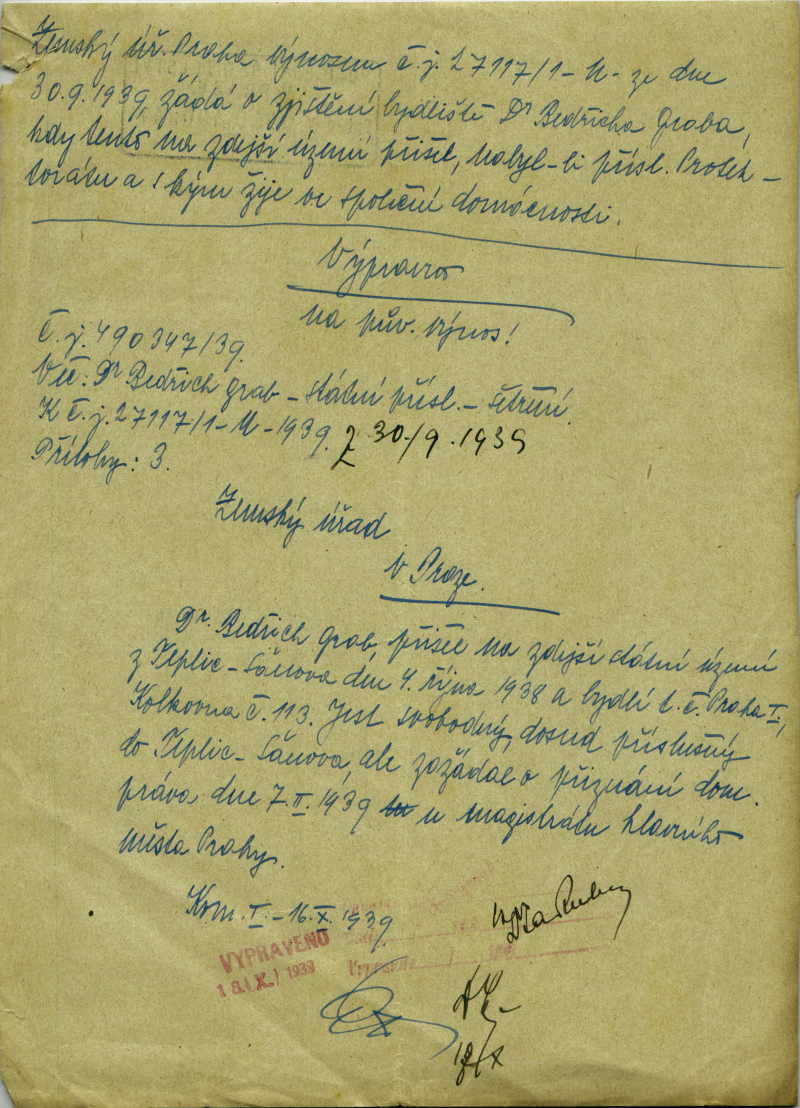 Zemský úř. Praha výnosem č.j. 27117/1-M- ze dne
30.9.1939, žádá o zjištění bydliště Dr Bedřicha Graba,
kdy tento na zdejší území přišel, nabyl-li přísl. Protek-
torátu a s kým žije ve společní domácnosti.
Výpravna
na pův. výnos!
Č.j. 490347/39.
Věc: Dr Bedřich Grab - státní přísl. - šetření.
K č.j. 27117/1-M-1939. z 30./9.1939
Přílohy: 3.
Zemský úřad
v Praze.
Dr. Bedřich Grab, přišel na zdejší státní území
z Teplic-Šanova dne 4. října 1938 a bydlí t.č. Praha I.,
Kolkovna č. 113. Jest svobodný, dosud příslušný
do Teplic-Šanova, ale zažádal o přiznání dom.
práva dne 7.II.1939 u magistrátu hlavního
města Prahy.
Kom. I. - 16.X.1939.
VYPRAVENO
18. X. 1939
18/X